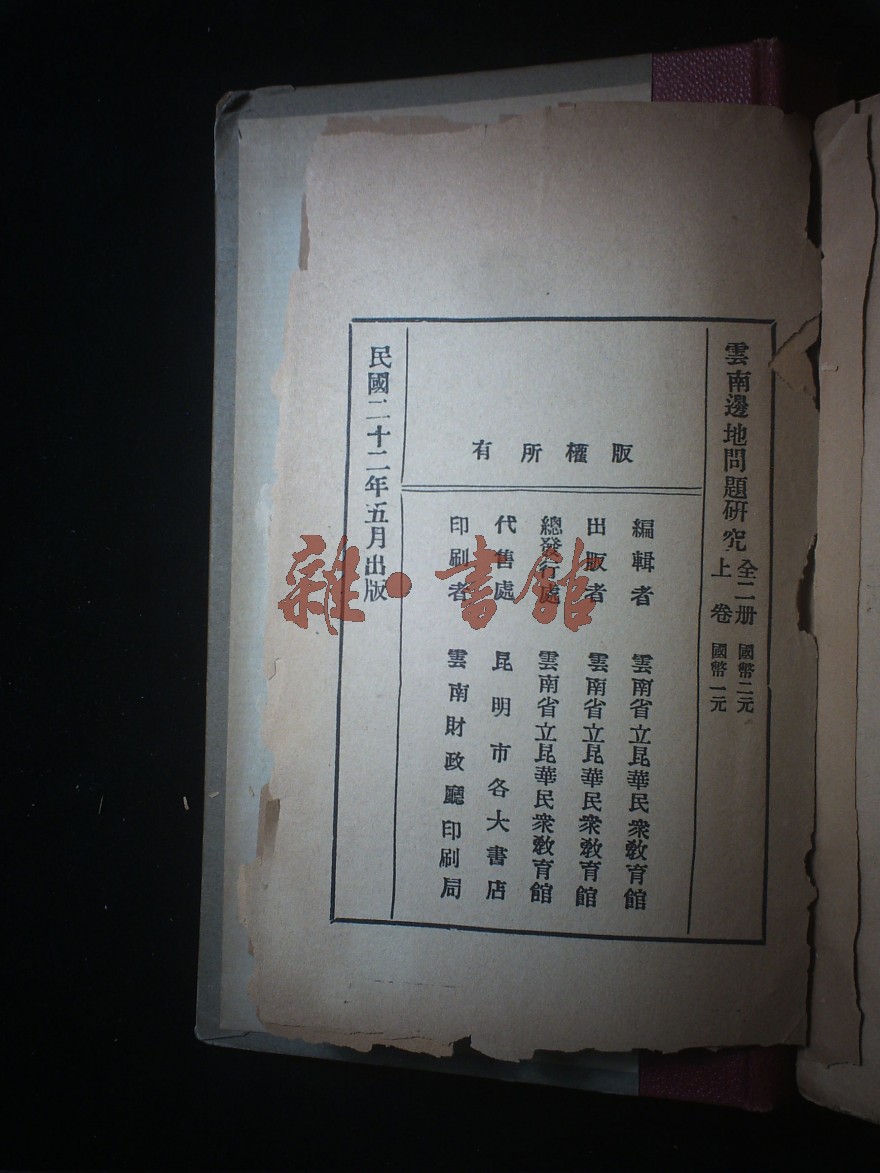 雲南邊地問題研究
全二册 國幣二元
上卷 國幣一元
版權所有
編輯者 雲南省立昆華民衆教育館
出版者 雲南省立昆華民衆教育館
總發行處 雲南省立昆華民衆教育館
代售處 昆明市各大書店
印刷者 雲南財政廳印刷局
民國二十二年五月出版
雜·書館